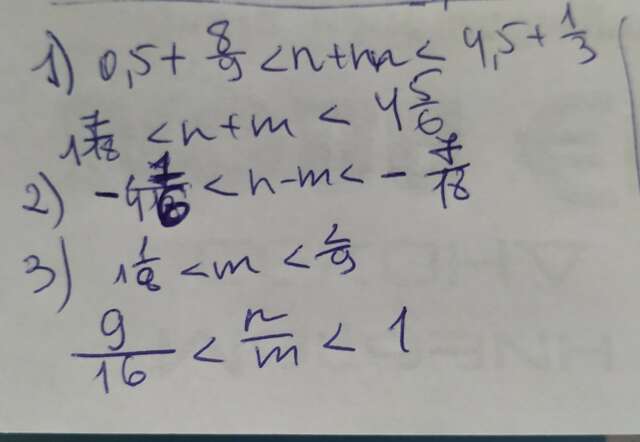 1) 0,5 + 8/9 < n + m < 4,5 + 1/3
1 7/18 < n + m < 4 5/6
2) - 4 1/6 < n - m < - 7/18
3) 1 1/8 < m < 2/9
9/16 < n/m < 1